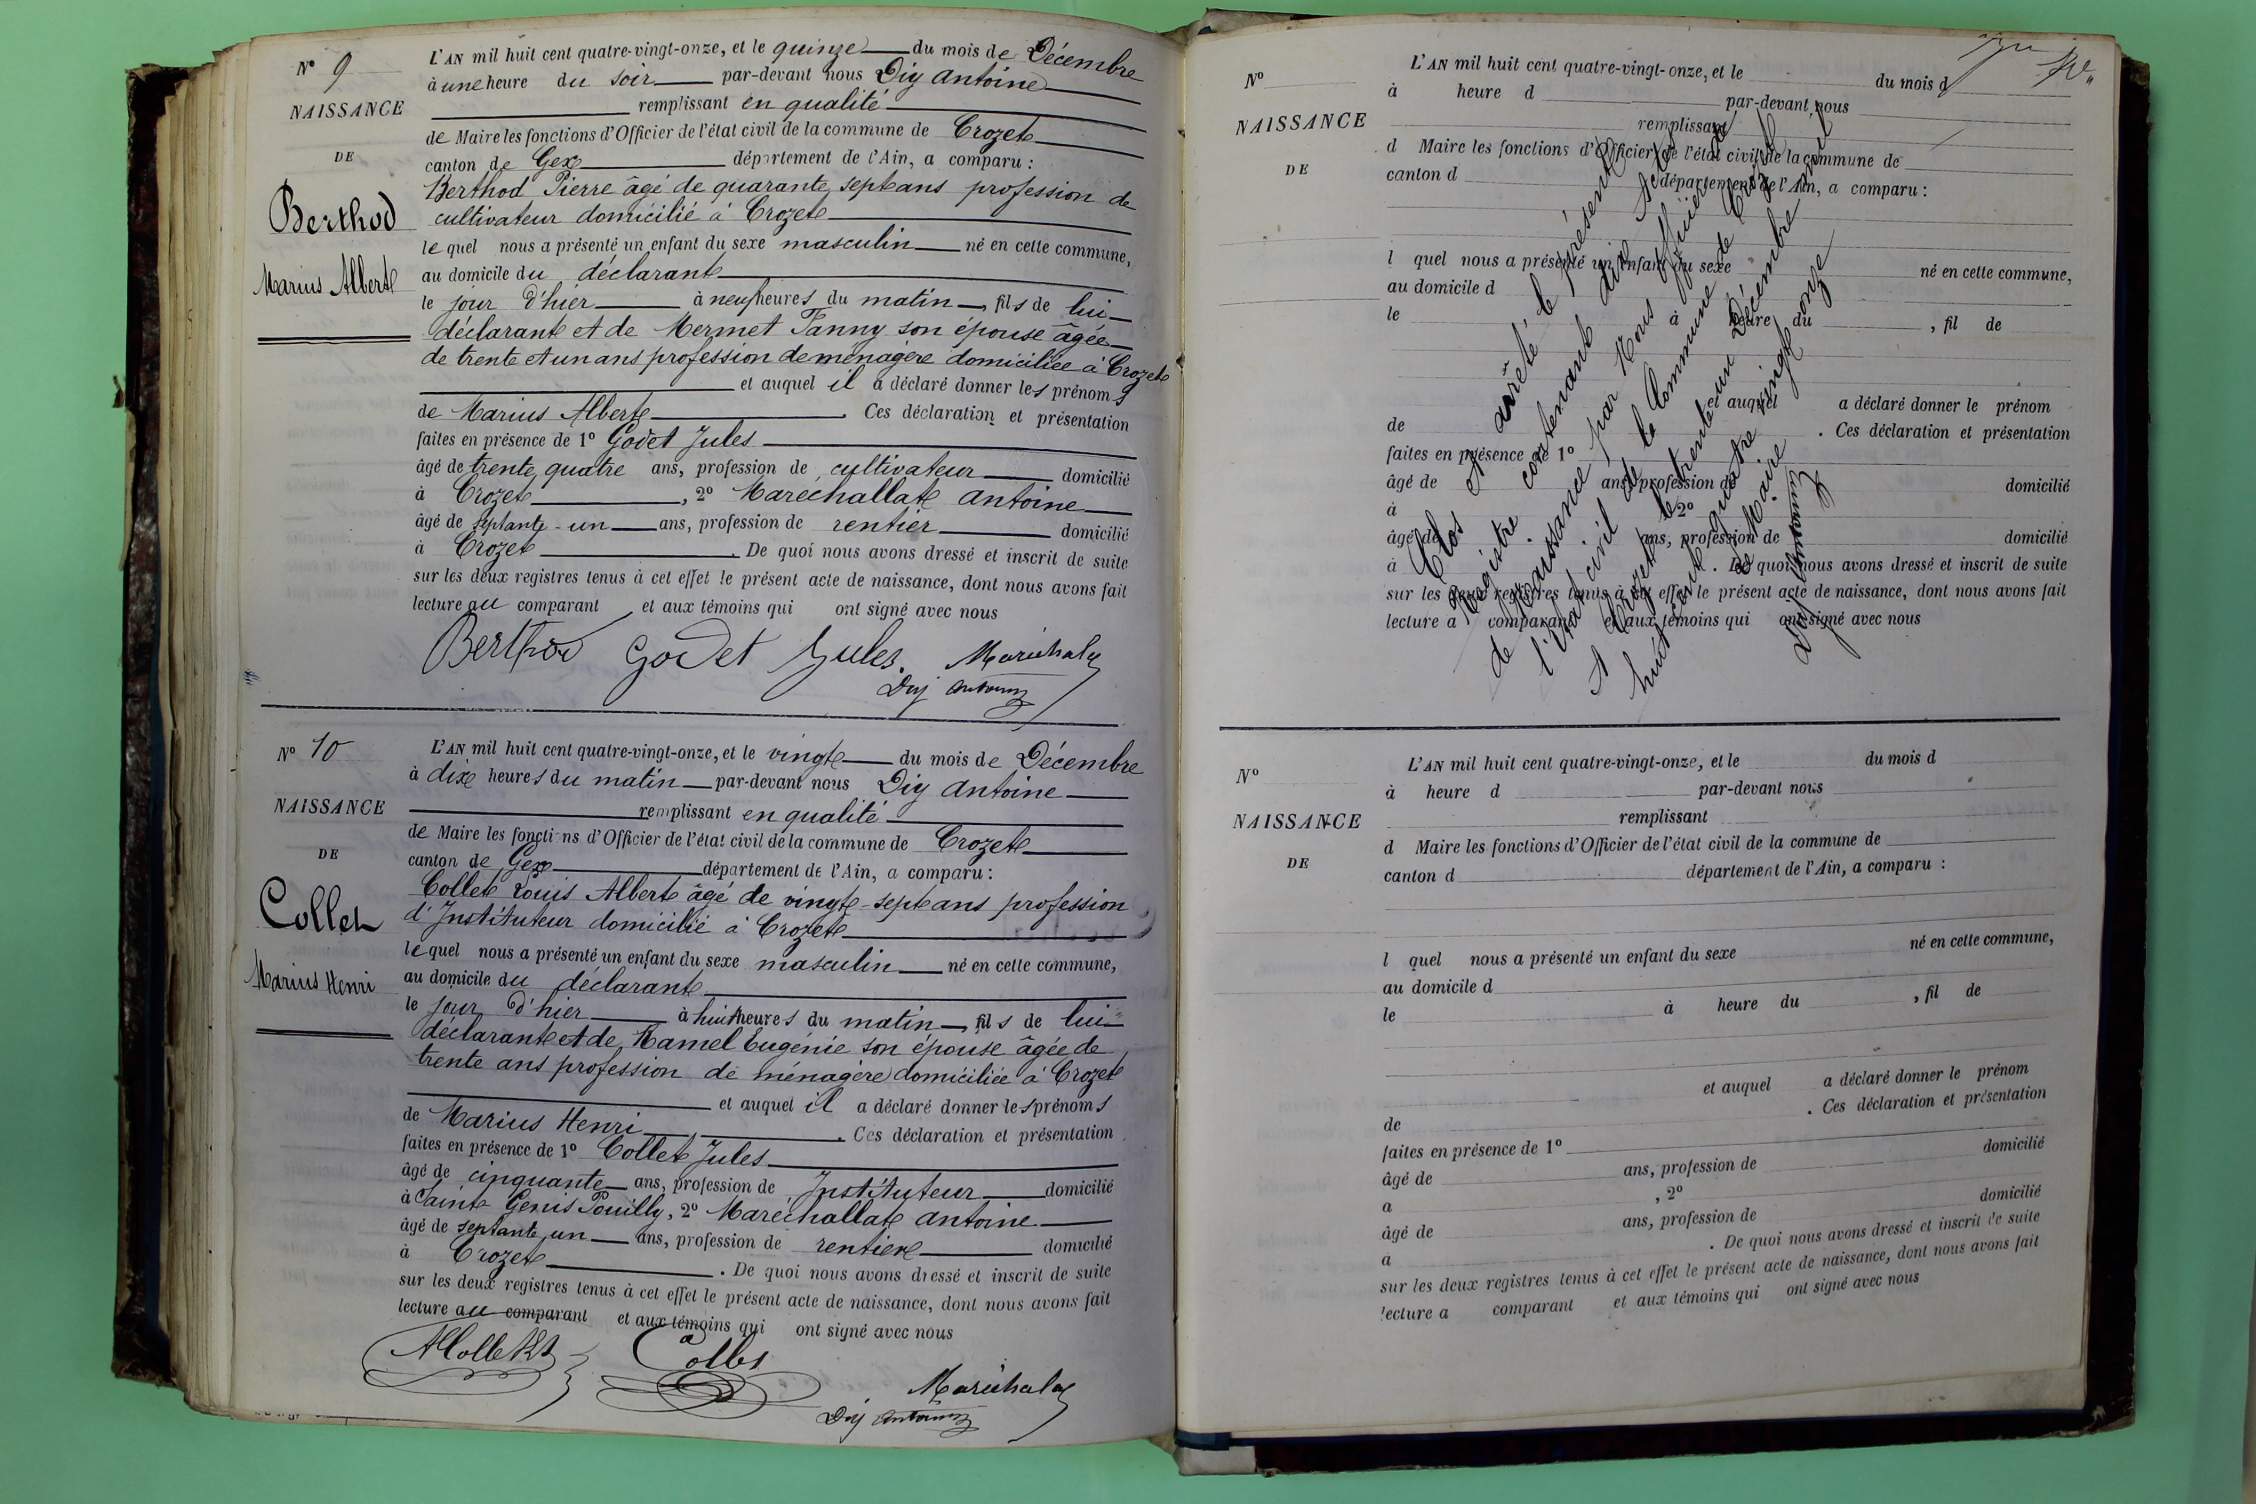 N° 9
NAISSANCE
DE
Berthod
Marius Albert
L'AN mil huit cent quatre-vingt-onze, et le quinze du mois de Décembre
à une heure du soir par-devant nous Diy Antoine
remplissant en qualité
de Maire les fonctions d'Officier de l'état civil de la commune de Crozet
canton de Gex département de l'Ain, a comparu :
Berthod Pierre âgé de quarante sept ans profession de
cultivateur domicilié à Crozet
lequel nous a présenté un enfant du sexe masculin né en cette commune,
au domicile du déclarant
le jour d'hier à neuf heures du matin, fils de lui
déclarant et de Mermet Fanny son épouse âgée
de trente et un ans profession de ménagère domiciliée à Crozet
et auquel il a déclaré donner les prénoms
de Marius Albert. Ces déclaration et présentation
faites en présence de 1° Godet Jules
âgé de trente quatre ans, profession de cultivateur domicilié
à Crozet, 2° Maréchallat Antoine
âgé de septante-un ans, profession de rentier domicilié
à Crozet. De quoi nous avons dressé et inscrit de suite
sur les deux registres tenus à cet effet le présent acte de naissance, dont nous avons fait
lecture au comparant et aux témoins qui ont signé avec nous
Berthod Godet Jules. Maréchalat
Diy Antoine
N° 10
NAISSANCE
DE
Collet
Marius Henri
L'AN mil huit cent quatre-vingt-onze, et le vingt du mois de Décembre
à dix heures du matin par-devant nous Diy Antoine
remplissant en qualité
de Maire les fonctions d'Officier de l'état civil de la commune de Crozet
canton de Gex département de l'Ain, a comparu :
Collet Louis Albert âgé de vingt-sept ans profession
d'Instituteur domicilié à Crozet
lequel nous a présenté un enfant du sexe masculin né en cette commune,
au domicile du déclarant
le jour d'hier à huit heures du matin, fils de lui
déclarant et de Hamel Eugénie son épouse âgée de
trente ans profession de ménagère domiciliée à Crozet
et auquel il a déclaré donner les prénoms
de Marius Henri. Ces déclaration et présentation
faites en présence de 1° Collet Jules
âgé de cinquante ans, profession de Instituteur domicilié
à Saint Genis Pouilly, 2° Maréchallat Antoine
âgé de septante un ans, profession de rentier domicilié
à Crozet. De quoi nous avons dressé et inscrit de suite
sur les deux registres tenus à cet effet le présent acte de naissance, dont nous avons fait
lecture au comparant et aux témoins qui ont signé avec nous
Collet
Maréchalat
Diy Antoine
N°
NAISSANCE
DE
L'AN mil huit cent quatre-vingt-onze, et le du mois d
à heure d par-devant nous
remplissant
d Maire les fonctions d'Officier de l'état civil de la commune de
canton d département de l'Ain, a comparu :
l quel nous a présenté un enfant du sexe né en cette commune,
au domicile d
le à heure du , fil de
et auquel a déclaré donner le prénom
de . Ces déclaration et présentation
faites en présence de 1°
âgé de ans, profession de domicilié
à , 2°
âgé de ans, profession de domicilié
à . De quoi nous avons dressé et inscrit de suite
sur les deux registres tenus à cet effet le présent acte de naissance, dont nous avons fait
lecture a comparant et aux témoins qui ont signé avec nous
Clos et arrêté le présent
Registre contenant dix Actes
de Naissance par Nous Officier de
l'Etat civil de la Commune de Crozet
A Crozet le trente et un Décembre mil
huit cent quatre vingt onze
Le Maire
Diy Antoine
N°
NAISSANCE
DE
L'AN mil huit cent quatre-vingt-onze, et le du mois d
à heure d par-devant nous
remplissant
d Maire les fonctions d'Officier de l'état civil de la commune de
canton d département de l'Ain, a comparu :
l quel nous a présenté un enfant du sexe né en cette commune,
au domicile d
le à heure du , fil de
et auquel a déclaré donner le prénom
de . Ces déclaration et présentation
faites en présence de 1°
âgé de ans, profession de domicilié
a , 2°
âgé de ans, profession de domicilié
a . De quoi nous avons dressé et inscrit de suite
sur les deux registres tenus à cet effet le présent acte de naissance, dont nous avons fait
lecture a comparant et aux témoins qui ont signé avec nous